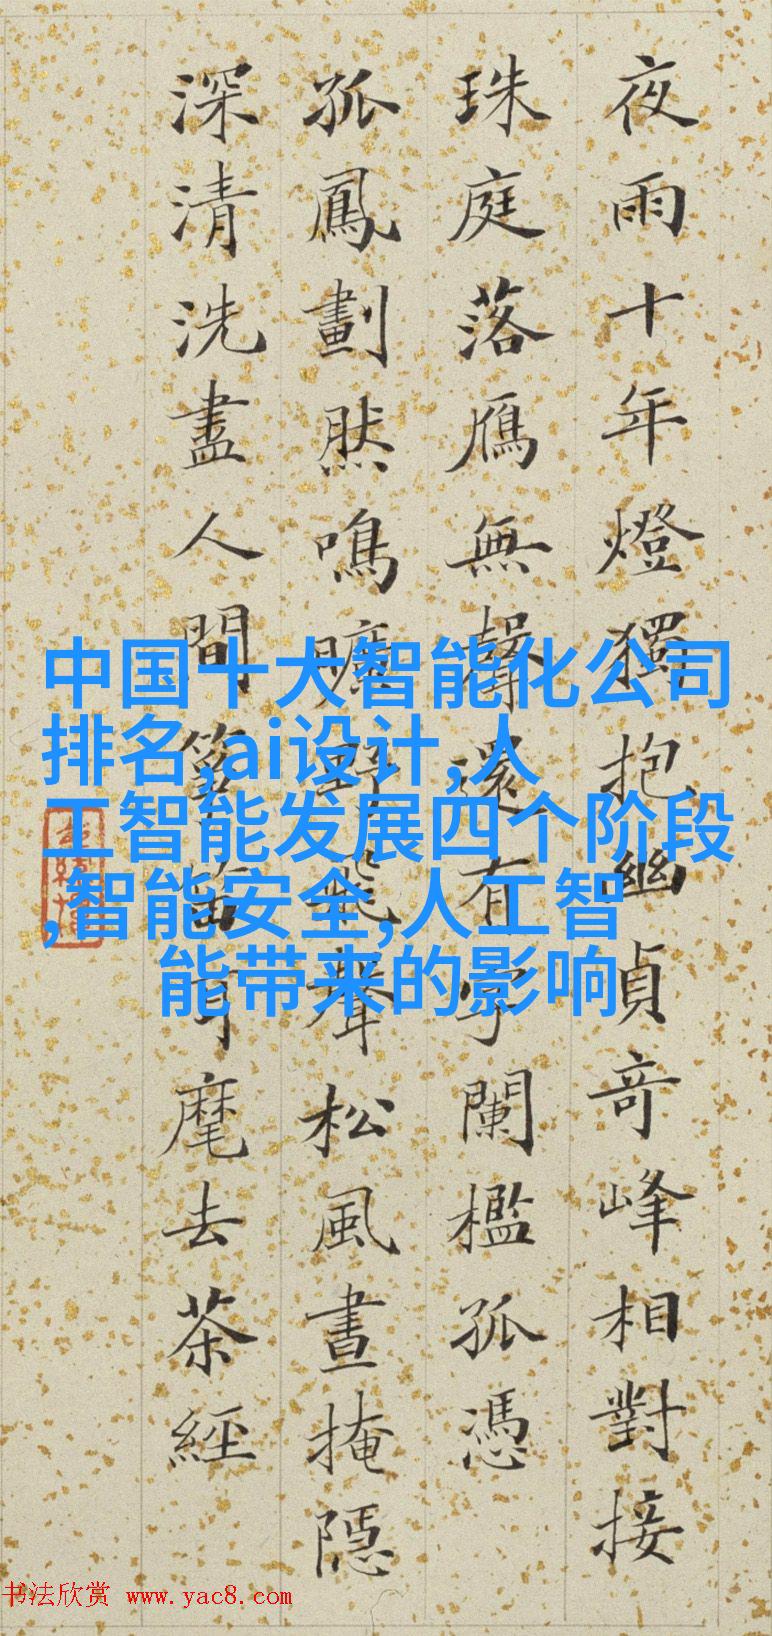 夜雨十年燈獨抱幽貞奇峰相對接
珠庭落鴈無聲還有字闌檻孤憑
孤鳳劃然鳴曠野飛聲松風晝掩隱
深清洗盡人間箏笛耳麾去茶經
中国十大智能化公司
排名,ai设计,人
工智能发展四个阶段
,智能安全,人工智
能带来的影响
书法欣赏 www.yac8.com